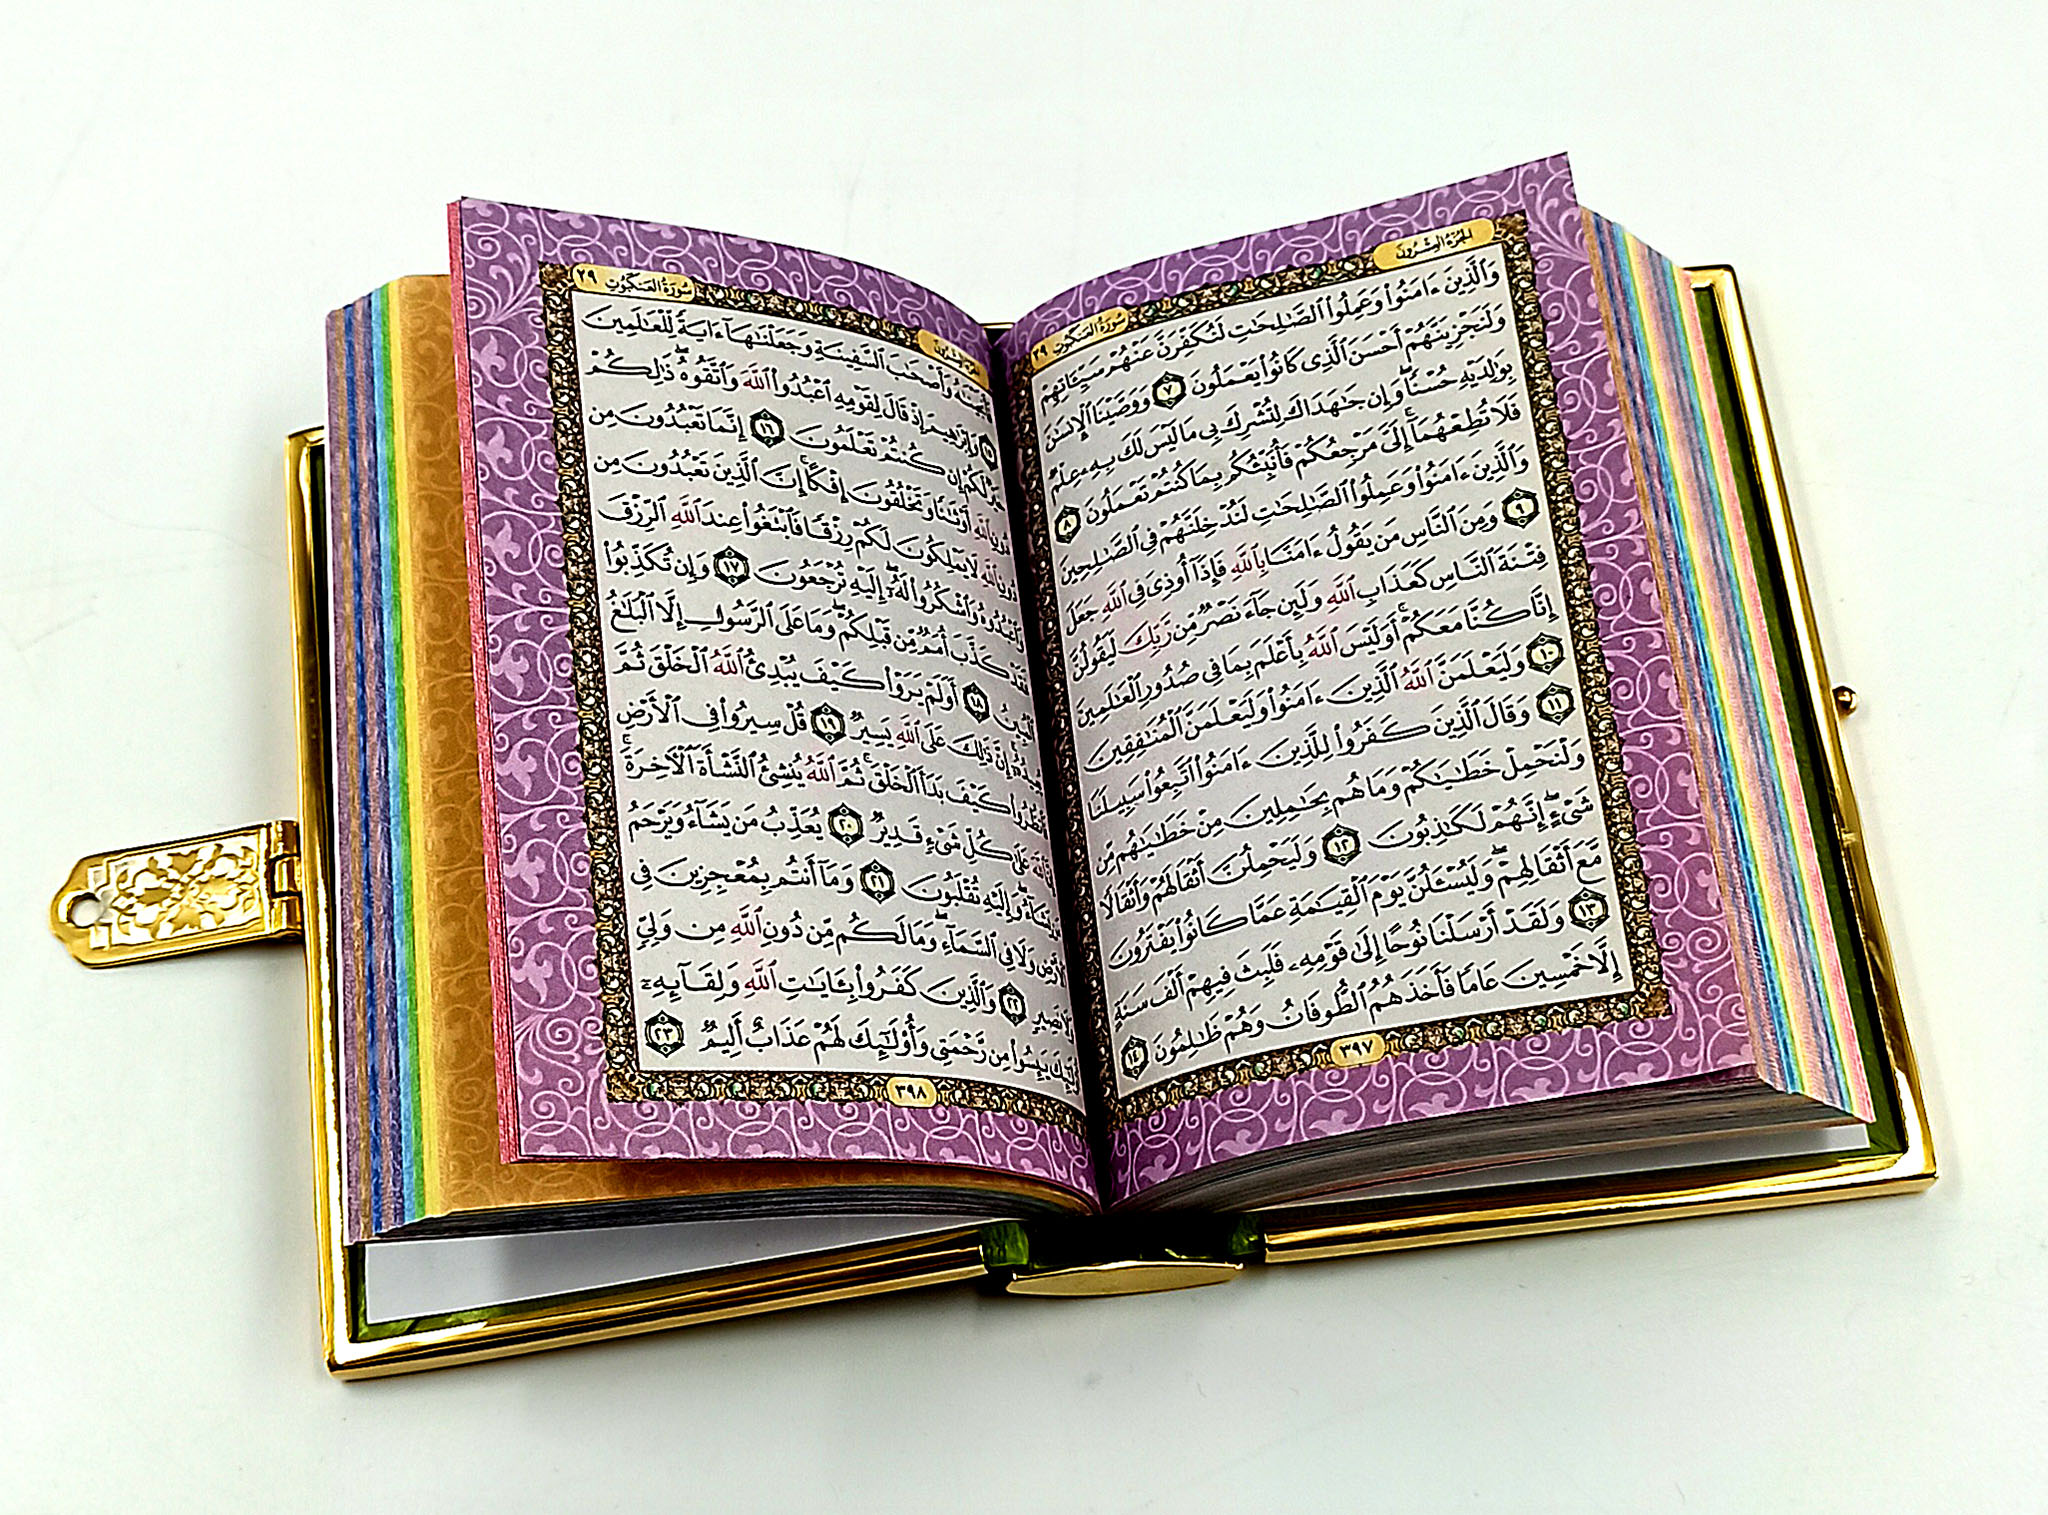 الجزء العشرون
سورة العنكبوت ٢٩
وَٱلَّذِينَ ءَامَنُوا۟ وَعَمِلُوا۟ ٱلصَّـٰلِحَـٰتِ لَنُكَفِّرَنَّ عَنْهُمْ سَيِّـَٔاتِهِمْ
وَلَنَجْزِيَنَّهُمْ أَحْسَنَ ٱلَّذِى كَانُوا۟ يَعْمَلُونَ ٧ وَوَصَّيْنَا ٱلْإِنسَـٰنَ
بِوَٰلِدَيْهِ حُسْنًا ۖ وَإِن جَـٰهَدَاكَ لِتُشْرِكَ بِى مَا لَيْسَ لَكَ بِهِۦ عِلْمٌ
فَلَا تُطِعْهُمَآ ۚ إِلَىَّ مَرْجِعُكُمْ فَأُنَبِّئُكُم بِمَا كُنتُمْ تَعْمَلُونَ ٨
وَٱلَّذِينَ ءَامَنُوا۟ وَعَمِلُوا۟ ٱلصَّـٰلِحَـٰتِ لَنُدْخِلَنَّهُمْ فِى ٱلصَّـٰلِحِينَ
٩ وَمِنَ ٱلنَّاسِ مَن يَقُولُ ءَامَنَّا بِٱللَّهِ فَإِذَآ أُوذِىَ فِى ٱللَّهِ جَعَلَ
فِتْنَةَ ٱلنَّاسِ كَعَذَابِ ٱللَّهِ وَلَئِن جَآءَ نَصْرٌ مِّن رَّبِّكَ لَيَقُولُنَّ
إِنَّا كُنَّا مَعَكُمْ ۚ أَوَلَيْسَ ٱللَّهُ بِأَعْلَمَ بِمَا فِى صُدُورِ ٱلْعَـٰلَمِينَ
١٠ وَلَيَعْلَمَنَّ ٱللَّهُ ٱلَّذِينَ ءَامَنُوا۟ وَلَيَعْلَمَنَّ ٱلْمُنَـٰفِقِينَ
١١ وَقَالَ ٱلَّذِينَ كَفَرُوا۟ لِلَّذِينَ ءَامَنُوا۟ ٱتَّبِعُوا۟ سَبِيلَنَا
وَلْنَحْمِلْ خَطَـٰيَـٰكُمْ وَمَا هُم بِحَـٰمِلِينَ مِنْ خَطَـٰيَـٰهُم مِّن
شَىْءٍ ۖ إِنَّهُمْ لَكَـٰذِبُونَ ١٢ وَلَيَحْمِلُنَّ أَثْقَالَهُمْ وَأَثْقَالًا
مَّعَ أَثْقَالِهِمْ ۖ وَلَيُسْـَٔلُنَّ يَوْمَ ٱلْقِيَـٰمَةِ عَمَّا كَانُوا۟ يَفْتَرُونَ
١٣ وَلَقَدْ أَرْسَلْنَا نُوحًا إِلَىٰ قَوْمِهِۦ فَلَبِثَ فِيهِمْ أَلْفَ سَنَةٍ
إِلَّا خَمْسِينَ عَامًا فَأَخَذَهُمُ ٱلطُّوفَانُ وَهُمْ ظَـٰلِمُونَ ١٤
٣٩٧
الجزء العشرون
سورة العنكبوت ٢٩
فَأَنجَيْنَـٰهُ وَأَصْحَـٰبَ ٱلسَّفِينَةِ وَجَعَلْنَـٰهَآ ءَايَةً لِّلْعَـٰلَمِينَ
١٥ وَإِبْرَٰهِيمَ إِذْ قَالَ لِقَوْمِهِ ٱعْبُدُوا۟ ٱللَّهَ وَٱتَّقُوهُ ۖ ذَٰلِكُمْ
خَيْرٌ لَّكُمْ إِن كُنتُمْ تَعْلَمُونَ ١٦ إِنَّمَا تَعْبُدُونَ مِن
دُونِ ٱللَّهِ أَوْثَـٰنًا وَتَخْلُقُونَ إِفْكًا ۚ إِنَّ ٱلَّذِينَ تَعْبُدُونَ مِن
دُونِ ٱللَّهِ لَا يَمْلِكُونَ لَكُمْ رِزْقًا فَٱبْتَغُوا۟ عِندَ ٱللَّهِ ٱلرِّزْقَ
وَٱعْبُدُوهُ وَٱشْكُرُوا۟ لَهُۥٓ ۖ إِلَيْهِ تُرْجَعُونَ ١٧ وَإِن تُكَذِّبُوا۟
فَقَدْ كَذَّبَ أُمَمٌ مِّن قَبْلِكُمْ ۖ وَمَا عَلَى ٱلرَّسُولِ إِلَّا ٱلْبَلَـٰغُ
ٱلْمُبِينُ ١٨ أَوَلَمْ يَرَوْا۟ كَيْفَ يُبْدِئُ ٱللَّهُ ٱلْخَلْقَ ثُمَّ
يُعِيدُهُۥٓ ۚ إِنَّ ذَٰلِكَ عَلَى ٱللَّهِ يَسِيرٌ ١٩ قُلْ سِيرُوا۟ فِى ٱلْأَرْضِ
فَٱنظُرُوا۟ كَيْفَ بَدَأَ ٱلْخَلْقَ ۚ ثُمَّ ٱللَّهُ يُنشِئُ ٱلنَّشْأَةَ ٱلْـَٔاخِرَةَ ۚ
إِنَّ ٱللَّهَ عَلَىٰ كُلِّ شَىْءٍ قَدِيرٌ ٢٠ يُعَذِّبُ مَن يَشَآءُ وَيَرْحَمُ
مَن يَشَآءُ ۖ وَإِلَيْهِ تُقْلَبُونَ ٢١ وَمَآ أَنتُم بِمُعْجِزِينَ فِى
ٱلْأَرْضِ وَلَا فِى ٱلسَّمَآءِ ۖ وَمَا لَكُم مِّن دُونِ ٱللَّهِ مِن وَلِىٍّ
وَلَا نَصِيرٍ ٢٢ وَٱلَّذِينَ كَفَرُوا۟ بِـَٔايَـٰتِ ٱللَّهِ وَلِقَآئِهِۦٓ
أُو۟لَـٰٓئِكَ يَئِسُوا۟ مِن رَّحْمَتِى وَأُو۟لَـٰٓئِكَ لَهُمْ عَذَابٌ أَلِيمٌ ٢٣
٣٩٨